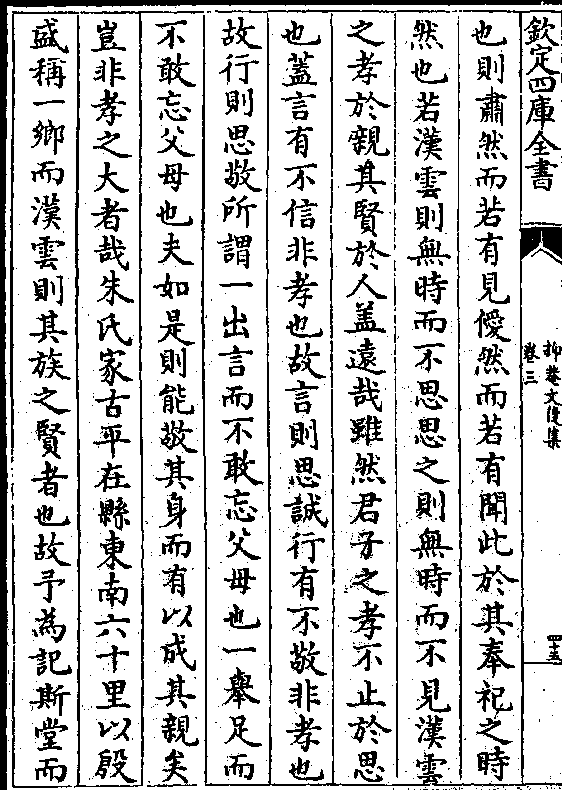 欽定四庫全書
抑菴文後集
卷三
四十五
也則肅然而若有見僾然而若有聞此於其奉祀之時
然也若漢雲則無時而不思思之則無時而不見漢雲
之孝於親其賢於人盖遠哉雖然君子之孝不止於思
也蓋言有不信非孝也故言則思誠行有不敬非孝也
故行則思敬所謂一出言而不敢忘父母也一舉足而
不敢忘父母也夫如是則能敬其身而有以成其親矣
豈非孝之大者哉朱氏家古平在縣東南六十里以殷
盛稱一鄉而漢雲則其族之賢者也故予為記斯堂而